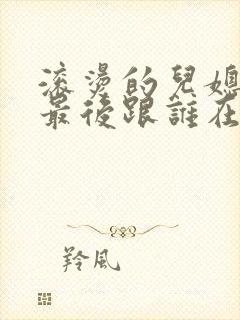 滚烫的兒媳
最後跟誰在
羚風